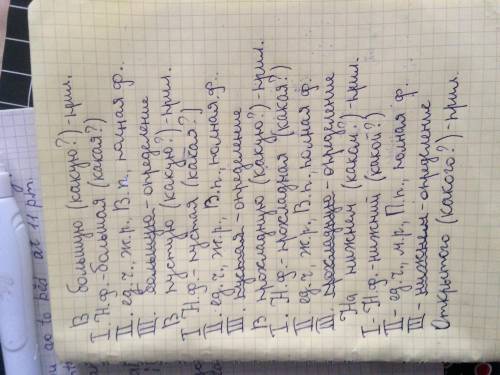 В большую (какую?) - прил.
I. Н.ф. - большая (какая?)
II. ед.ч., ж.р., В.п., полная ф.
III. большую - определение
В пустую (какую?) - прил.
I. Н.ф. - пустая (какая?)
II. ед.ч., ж.р., В.п., полная ф.
III. пустая - определение
В прохладную (какую?) - прил.
I. Н.ф. - прохладная (какая?)
II. ед.ч., ж.р., В.п., полная ф.
III. прохладную - определение
На нижнем (каком?) - прил.
I - Н.ф. - нижний (какой?)
II - ед.ч., м.р., П.п., полная ф.
III - нижнем - определение
Открытого (какого?) - прил.
go to bed at 11 pm